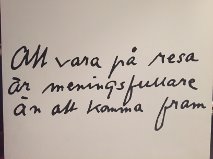 Att vara på resa
är meningsfullare
än att komma fram